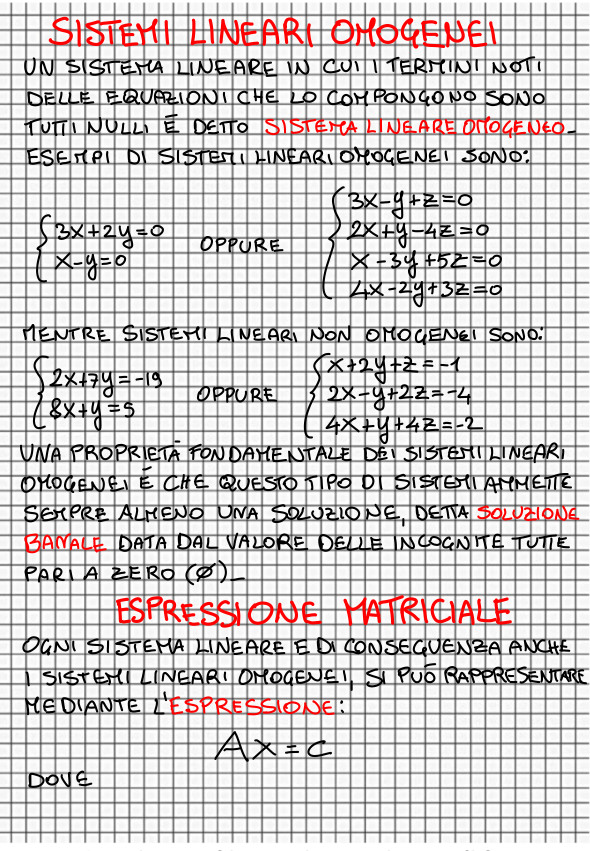 SISTEMI LINEARI OMOGENEI
UN SISTEMA LINEARE IN CUI I TERMINI NOTI
DELLE EQUAZIONI CHE LO COMPONGONO SONO
TUTTI NULLI È DETTO SISTEMA LINEARE OMOGENEO_
ESEMPI DI SISTEMI LINEARI OMOGENEI SONO:
{3x+2y=0
x-y=0
OPPURE
{3x-y+z=0
2x+y-4z=0
x-3y+5z=0
4x-2y+3z=0
MENTRE SISTEMI LINEARI NON OMOGENEI SONO:
{2x+7y=-19
8x+y=5
OPPURE
{x+2y+z=-1
2x-y+2z=-4
4x+y+4z=-2
UNA PROPRIETÀ FONDAMENTALE DEI SISTEMI LINEARI
OMOGENEI È CHE QUESTO TIPO DI SISTEMI AMMETTE
SEMPRE ALMENO UNA SOLUZIONE, DETTA SOLUZIONE
BANALE DATA DAL VALORE DELLE INCOGNITE TUTTE
PARI A ZERO (Ø)_
ESPRESSIONE MATRICIALE
OGNI SISTEMA LINEARE E DI CONSEGUENZA ANCHE
I SISTEMI LINEARI OMOGENEI, SI PUÒ RAPPRESENTARE
MEDIANTE L'ESPRESSIONE:
Ax=C
DOVE